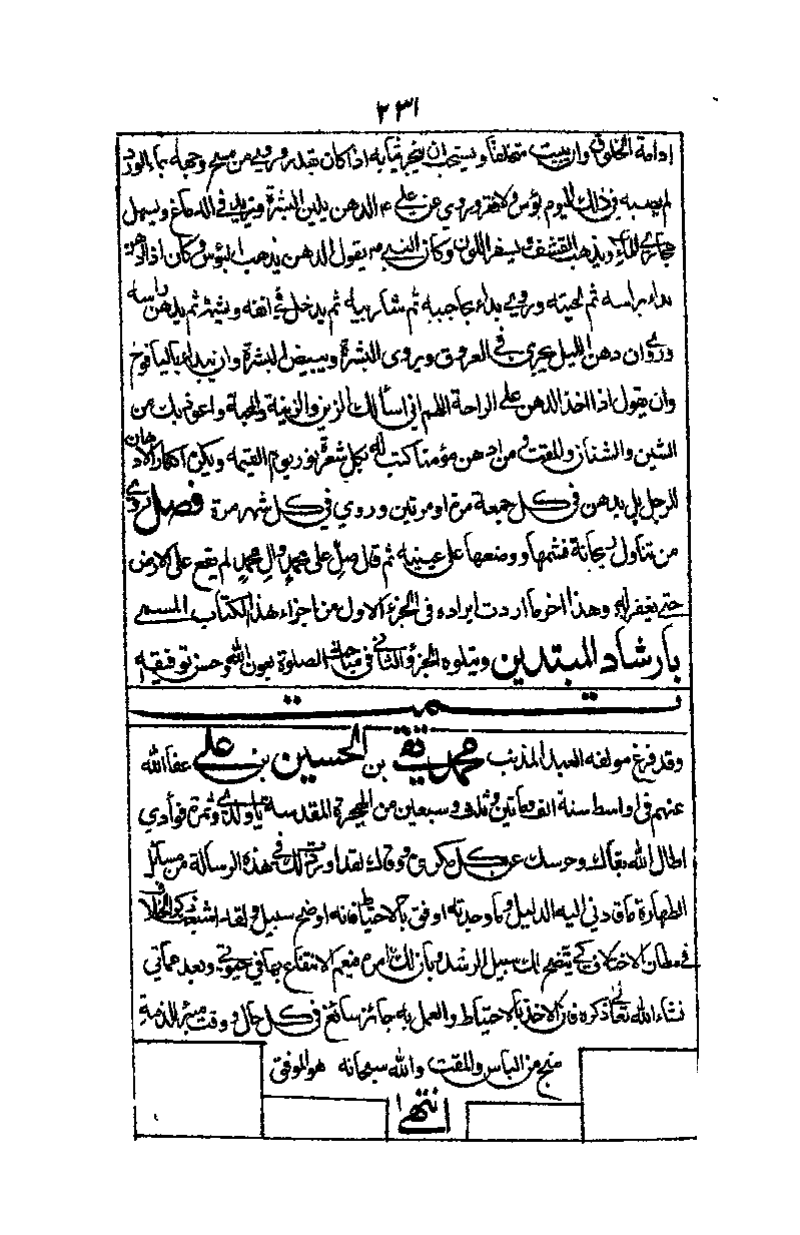 ٢٣١
إدامة الخلوق وان يبيت متخلقا ويستحب ان يجمر ثيابه اذا كان يقدر وروي من مسح وجهه بماء الورد
لم يصبه في ذلك اليوم بؤس ولا فقر وروي عن علي ع الدهن يلين البشرة ويزيد في الدماغ ويسهل
مجاري الماء ويذهب القشف ويسفر اللون وكان النبي ص يقول الدهن يذهب البؤس وكان اذا ادهن
بداء براسه ثم لحيته وروي بداء بحاجبيه ثم شاربيه ثم يدخل في انفه ويشمه ثم يدهن راسه
وروي ان دهن الليل يجري في العروق ويروى البشرة ويبيض البشرة وان يبداء باليافوخ
وان يقول اذا اخذ الدهن على الراحة اللهم اني اسألك الزين والزينة والمحبة واعوذ بك من
الشين والشنان والمقت ومن ادهن مؤمنا كتب له بكل شعرة نور يوم القيمه ويكره اكثار الادهان
للرجل بل يدهن في كل جمعة مرة او مرتين وروي في كل شهر مرة فصل روي
من تناول ريحانة فشمها ووضعها على عينيه ثم قال صل على محمد وال محمد لم يقع على الارض
حتى يغفر له وهذا اخر ما اردت ايراده في الجزء الاول من اجزاء هذا الكتاب المسمى
بارشاد المبتدين ويتلوه الجزؤ الثاني في مباحث الصلوة بعون الله وحسن توفيقه
تمت
وقد فرغ مولفه العبد المذنب محمد تقي بن الحسين بن علي عفا الله
عنهم في اواسط سنة الف ومأتين وثلث وسبعين من الهجرة المقدسة يا ولدي وثمرة فوأدي
اطال الله بقاك وحرسك عن كل مكروه ووقاك لقد اوردت لك في هذه الرسالة من مسائل
الطهارة ما قادني اليه الدليل وما وجدته اوفق بالاحتياط فانه اوضح سبيل ولقد اشبعت ذكر الخلاف
في مظان الاختلاف كي يتضح لك سبيل الرشد وبان لك امر منعم الانتفاع بها في حيوتي وبعد مماتي
نشاء الله تعالى ذكره فان الاخذ بالاحتياط والعمل به جائز سائغ في كل حال ووقت مبرء الذمة
منج من الباس والمقت والله سبحانه هو الموفق
انتهى